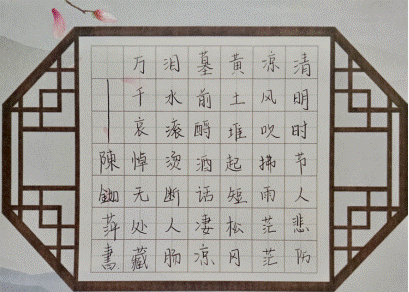 清明时节人悲伤
凉风吹拂雨茫茫
黄土堆起短松冈
墓前酹酒话凄凉
泪水滚烫断人肠
万千哀悼无处藏
—陳萍書